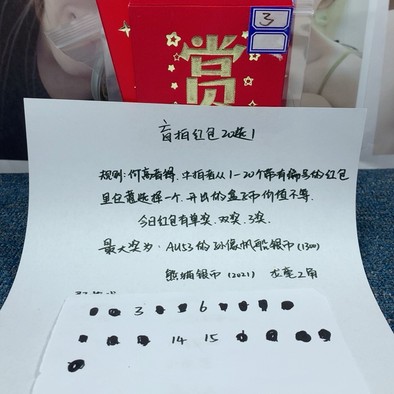 赏
3
盲拍红包20选1
规则:价高者得,中拍者从1-20个带有编号的红包
里任意选择一个,开出的盒子币价值不等.
今日红包有单奖,双奖,3奖.
最大奖为: AU53的孙像帆船银币(1300)
熊猫银币(2021) 龙毫2角
3 6
14 15